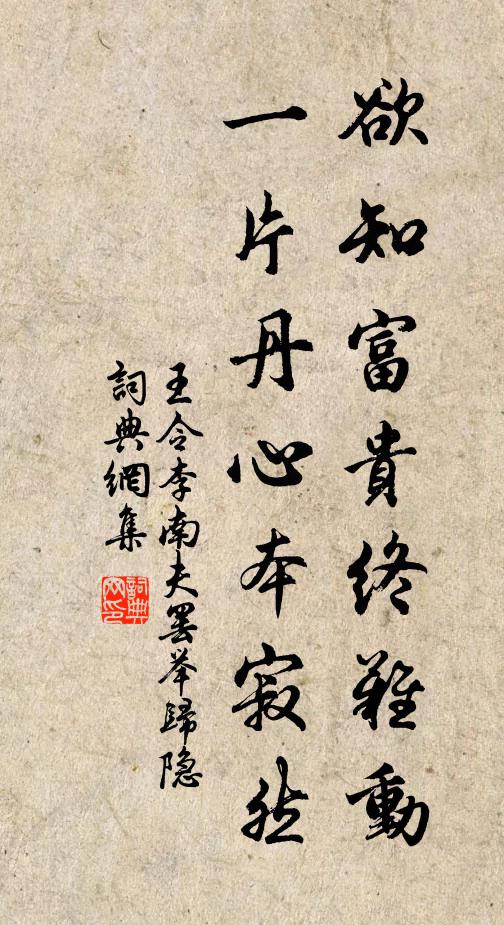 欲知富貴終難動
一片丹心本寂然
王令李南夫罢举歸隐
詞典網集
詞典网印